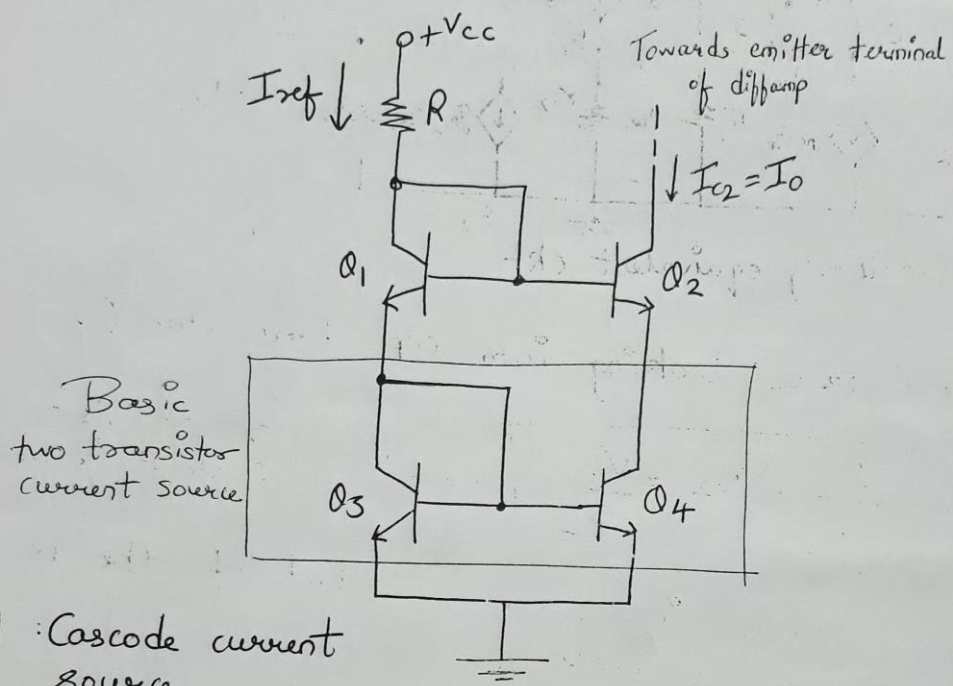 +Vcc
Towards emitter terminal
of diffamp
Iref
R
Ic2 = Io
Q1
Q2
Basic
two transistor
current source
Q3
Q4
: Cascode current
source